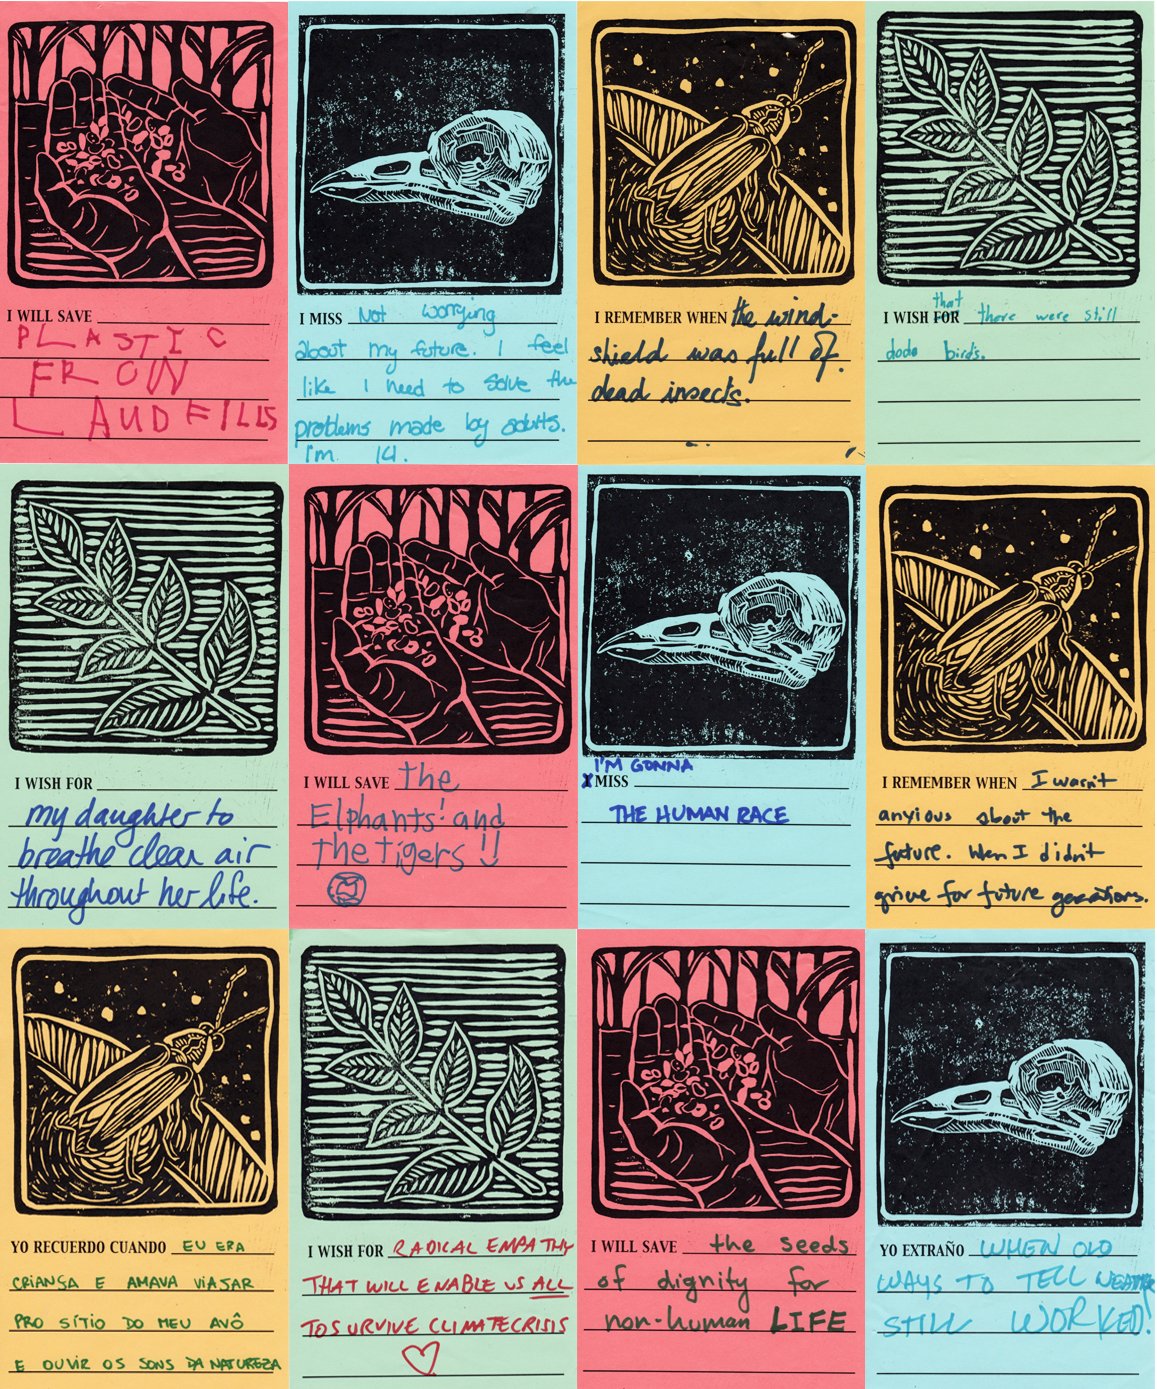 I WILL SAVE
PLASTIC
FROW
LAUDFILLS
I MISS Not worrying
about my future. I feel
like I need to solve the
problems made by adults.
I'm 14.
I REMEMBER WHEN the wind-
shield was full of
dead insects.
that
I WISH FOR there were still
dodo birds.
I WISH FOR
my daughter to
breathe clean air
throughout her life.
I WILL SAVE the
Elphants! and
The tigers!!
I'M GONNA
MISS
THE HUMAN RACE
I REMEMBER WHEN I wasn't
anyious about the
future. When I didn't
grieve for future generations.
YO RECUERDO CUANDO EU ERA
CRIANSA E AMAVA VIAJAR
PRO SÍTIO DO MEU AVÔ
E OUVIR OS SONS DA NATUREZA
I WISH FOR RADICAL EMPATHY
THAT WILL ENABLE US ALL
TO SURVIVE CLIMATE CRISIS
I WILL SAVE the seeds
of dignity for
non-human LIFE
YO EXTRAÑO WHEN OLD
WAYS TO TELL WEATHER
STILL WORKED!